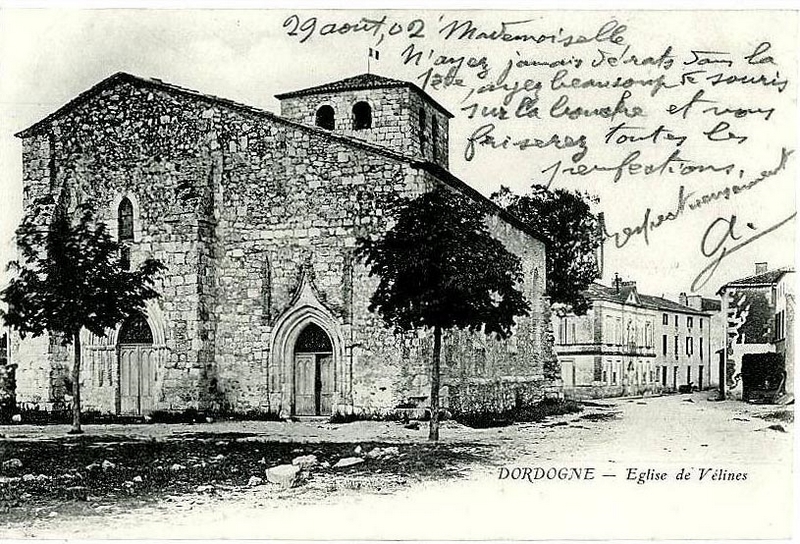 29 août, 02 Mademoiselle
N'ayez jamais de rats dans la
tête, ayez beaucoup de souris
sur la bouche et vous
friserez toutes les
perfections,
respectueusement
G.
DORDOGNE — Eglise de Vélines